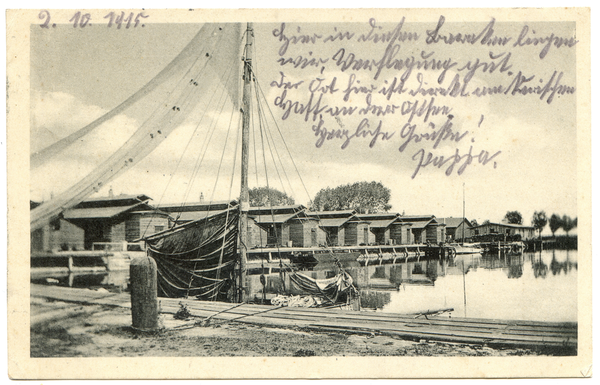 2. 10. 1915.
Hier in diesen Baracken liegen
wir, Verpflegung gut.
Der Ort hier ist direkt am Kurischen
Haff an der Ostsee.
Herzliche Grüße!
Pappa.